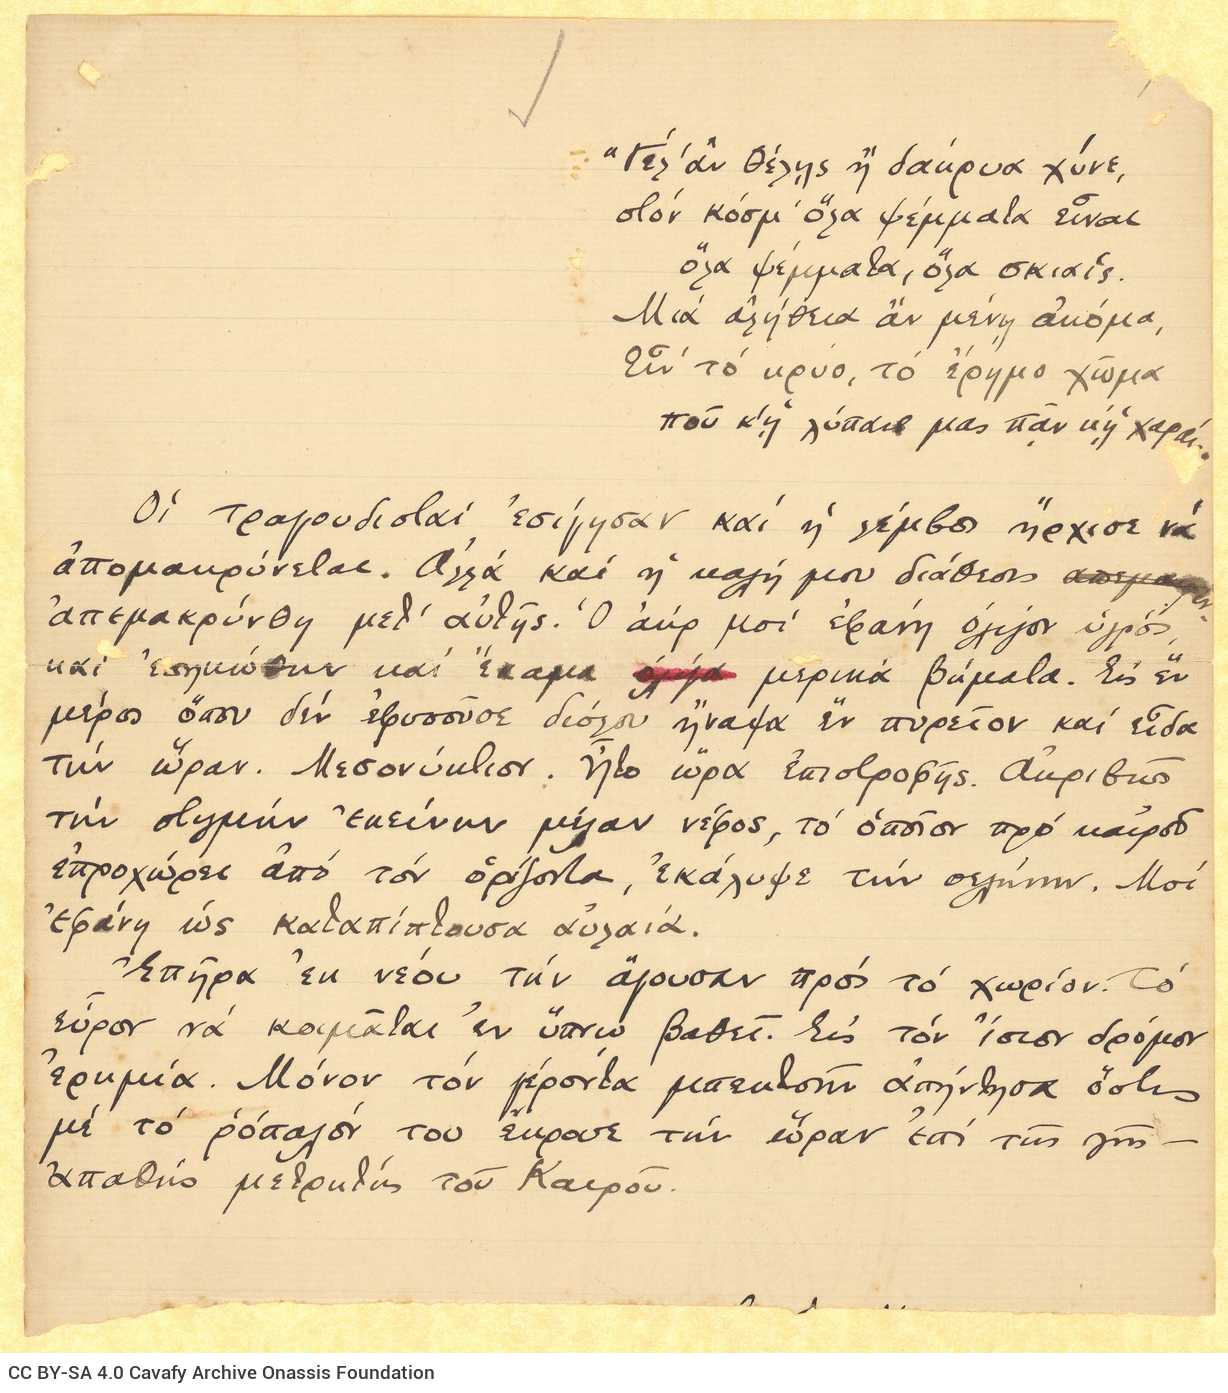 "Γέλ' ἂν θέλῃς ἢ δάκρυα χύνε,
στὸν κόσμ' ὅλα ψέμματα εἶναι
ὅλα ψέμματα, ὅλα σκιαίς.
Μιὰ ἀλήθεια ἂν μένῃ ἀκόμα,
εἶν' τὸ κρύο, τὸ ἔρημο χῶμα
ποῦ κ' ᾑ λύπαις μας πᾶν κ' ᾑ χαραίς.
Οἱ τραγουδισταὶ ἐσίγησαν καὶ ἡ λέμβος ἤρχισε νὰ
ἀπομακρύνεται. Ἀλλὰ καὶ ἡ καλή μου διάθεσις
ἀπεμακρύνθη μετ' αὐτῆς. Ὁ ἀὴρ μοὶ ἐφάνη ὀλίγον ὑγρός,
καὶ ἐσηκώθην καὶ ἔκαμα ὀλίγα μερικὰ βήματα. Εἰς ἓν
μέρος ὅπου δὲν ἐφυσοῦσε διόλου ἤναψα ἓν πυρεῖον καὶ εἶδα
τὴν ὥραν. Μεσονύκτιον. Ἦτο ὥρα ἐπιστροφῆς. Ἀκριβῶς
τὴν στιγμὴν ἐκείνην μέγαν νέφος, τὸ ὁποῖον πρὸ καιροῦ
ἐπροχώρει ἀπὸ τὸν ὁρίζοντα, ἐκάλυψε τὴν σελήνην. Μοὶ
ἐφάνη ὡς καταπίπτουσα αὐλαία.
Ἐπῆρα ἐκ νέου τὴν ἄγουσαν πρὸς τὸ χωρίον. Τὸ
εὗρον νὰ κοιμᾶται ἐν ὕπνῳ βαθεῖ. Εἰς τὸν ἴσιον δρόμον
ἐρημία. Μόνον τὸν γέροντα μπεκτσῆν ἀπήντησα ὅστις
μὲ τὸ ῥόπαλόν του ἔκρουε τὴν ὥραν ἐπὶ τῆς γῆς –
ἀπαθὴς μετρητὴς τοῦ Καιροῦ.
CC BY-SA 4.0 Cavafy Archive Onassis Foundation